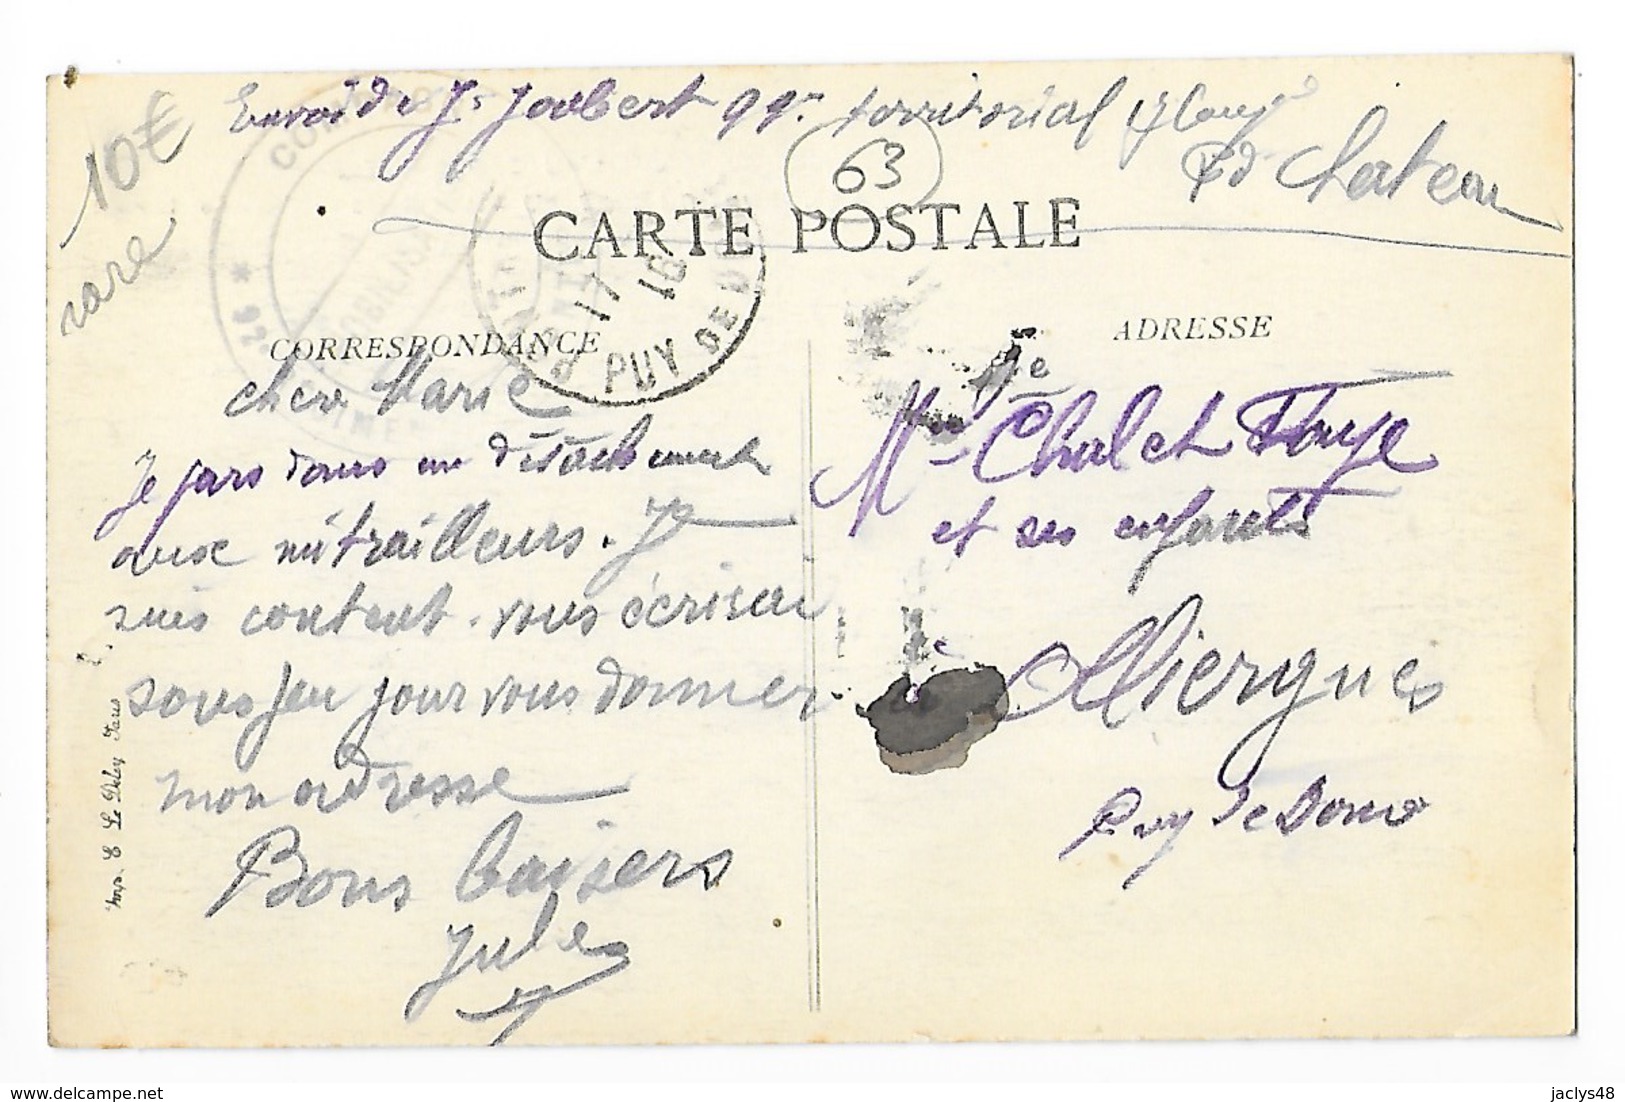 Envoi de J. Joubert 99e territorial
Chateau
10€
rare
63
CARTE POSTALE
CORRESPONDANCE
ADRESSE
PUY DE DOME
chere Marie
Je pars dans un détachement
avec mitrailleurs. Je
suis content. vous écrirai
sous peu pour vous donner
mon adresse
Bons baisers
Jules
Mme Chalchet Faye
et ses enfants
à
Olliergues
Puy de Dome
Imp. E. Le Deley, Paris
jaclys48